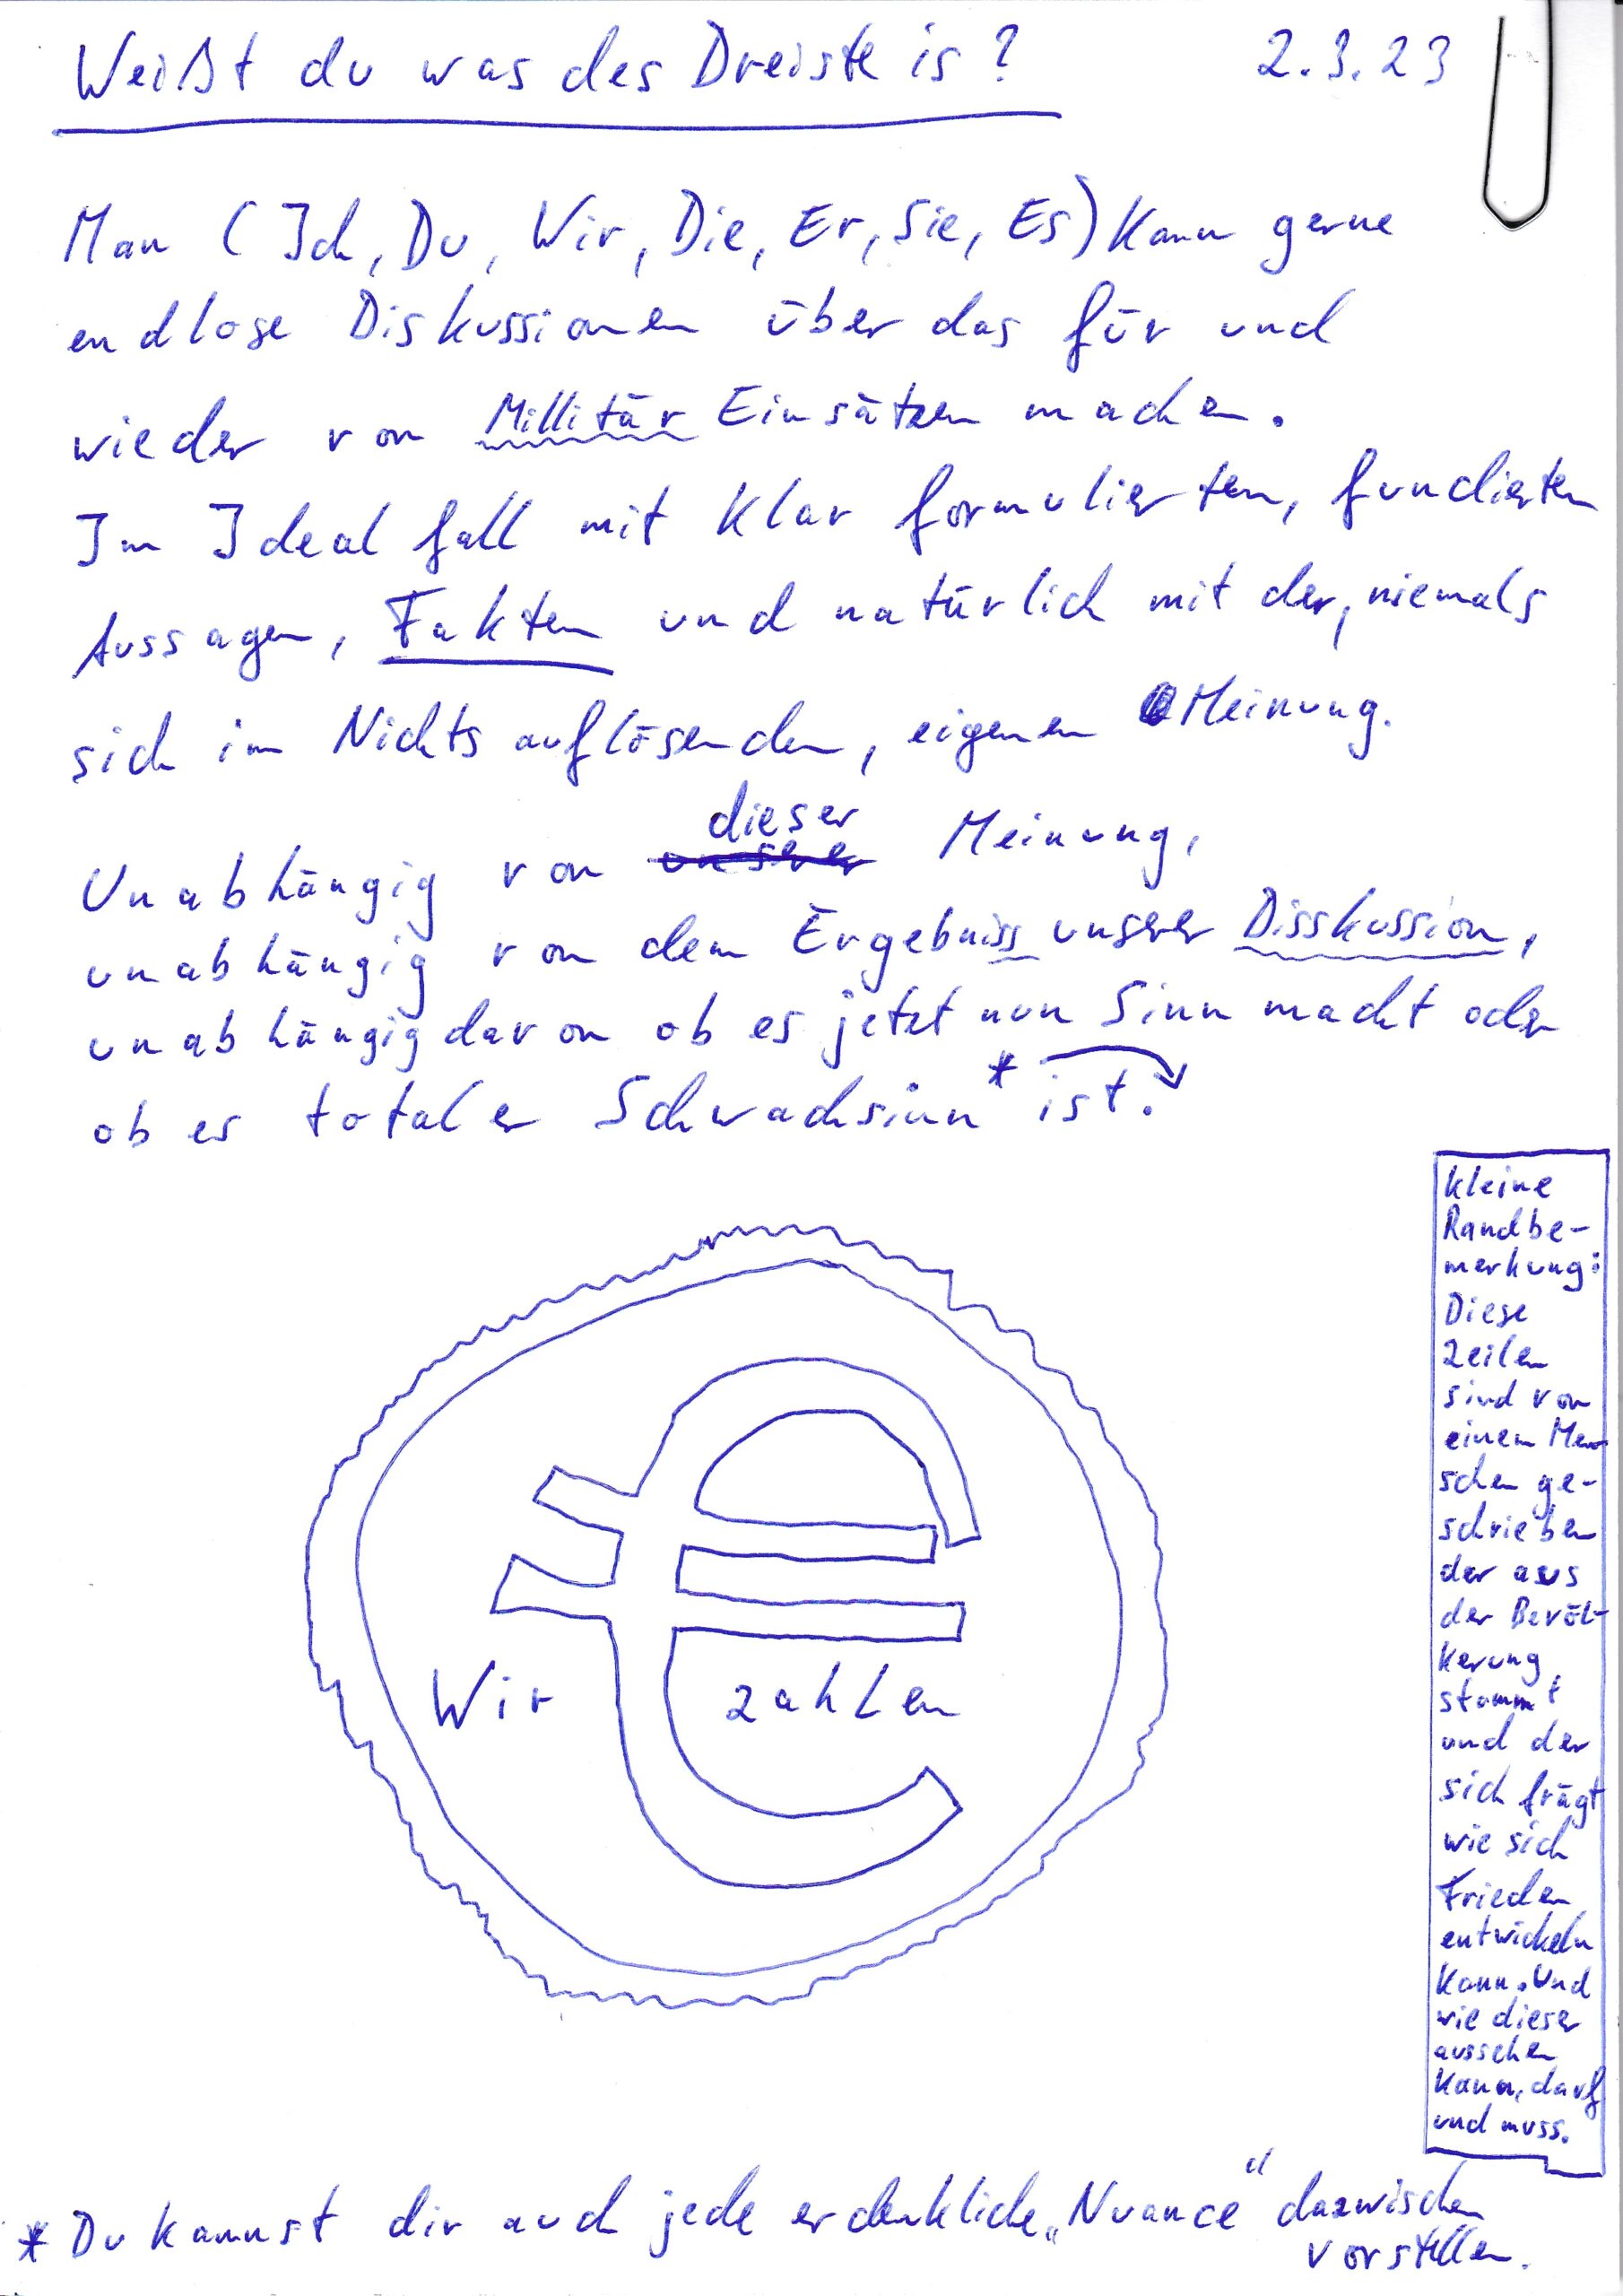 Weißt du was des Dreiste is? 2.3.23
Man (Ich, Du, Wir, Die, Er, Sie, Es) kann gerne
endlose Diskussionen über das für und
wieder von Millitär Einsätzen machen.
Im Idealfall mit klar formulierten, fundierten
Aussagen, Fakten und natürlich mit der, niemals
sich im Nichts auflösenden, eigenen Meinung.
dieser
Unabhängig von unserer Meinung,
unabhängig von dem Ergebniss unserer Disskussion,
unabhängig davon ob es jetzt nun Sinn macht oder
ob es totaler Schwachsinn* ist:
Wir zahlen
kleine
Randbe-
merkung:
Diese
Zeilen
sind von
einem Men
schen ge-
schrieben
der aus
der Bevöl-
kerung
stammt
und der
sich frägt
wie sich
Frieden
entwickeln
kann. Und
wie dieser
aussehen
kann, darf
und muss.
* Du kannst dir auch jede erdenkliche „Nuance“ dazwischen
vorstellen.